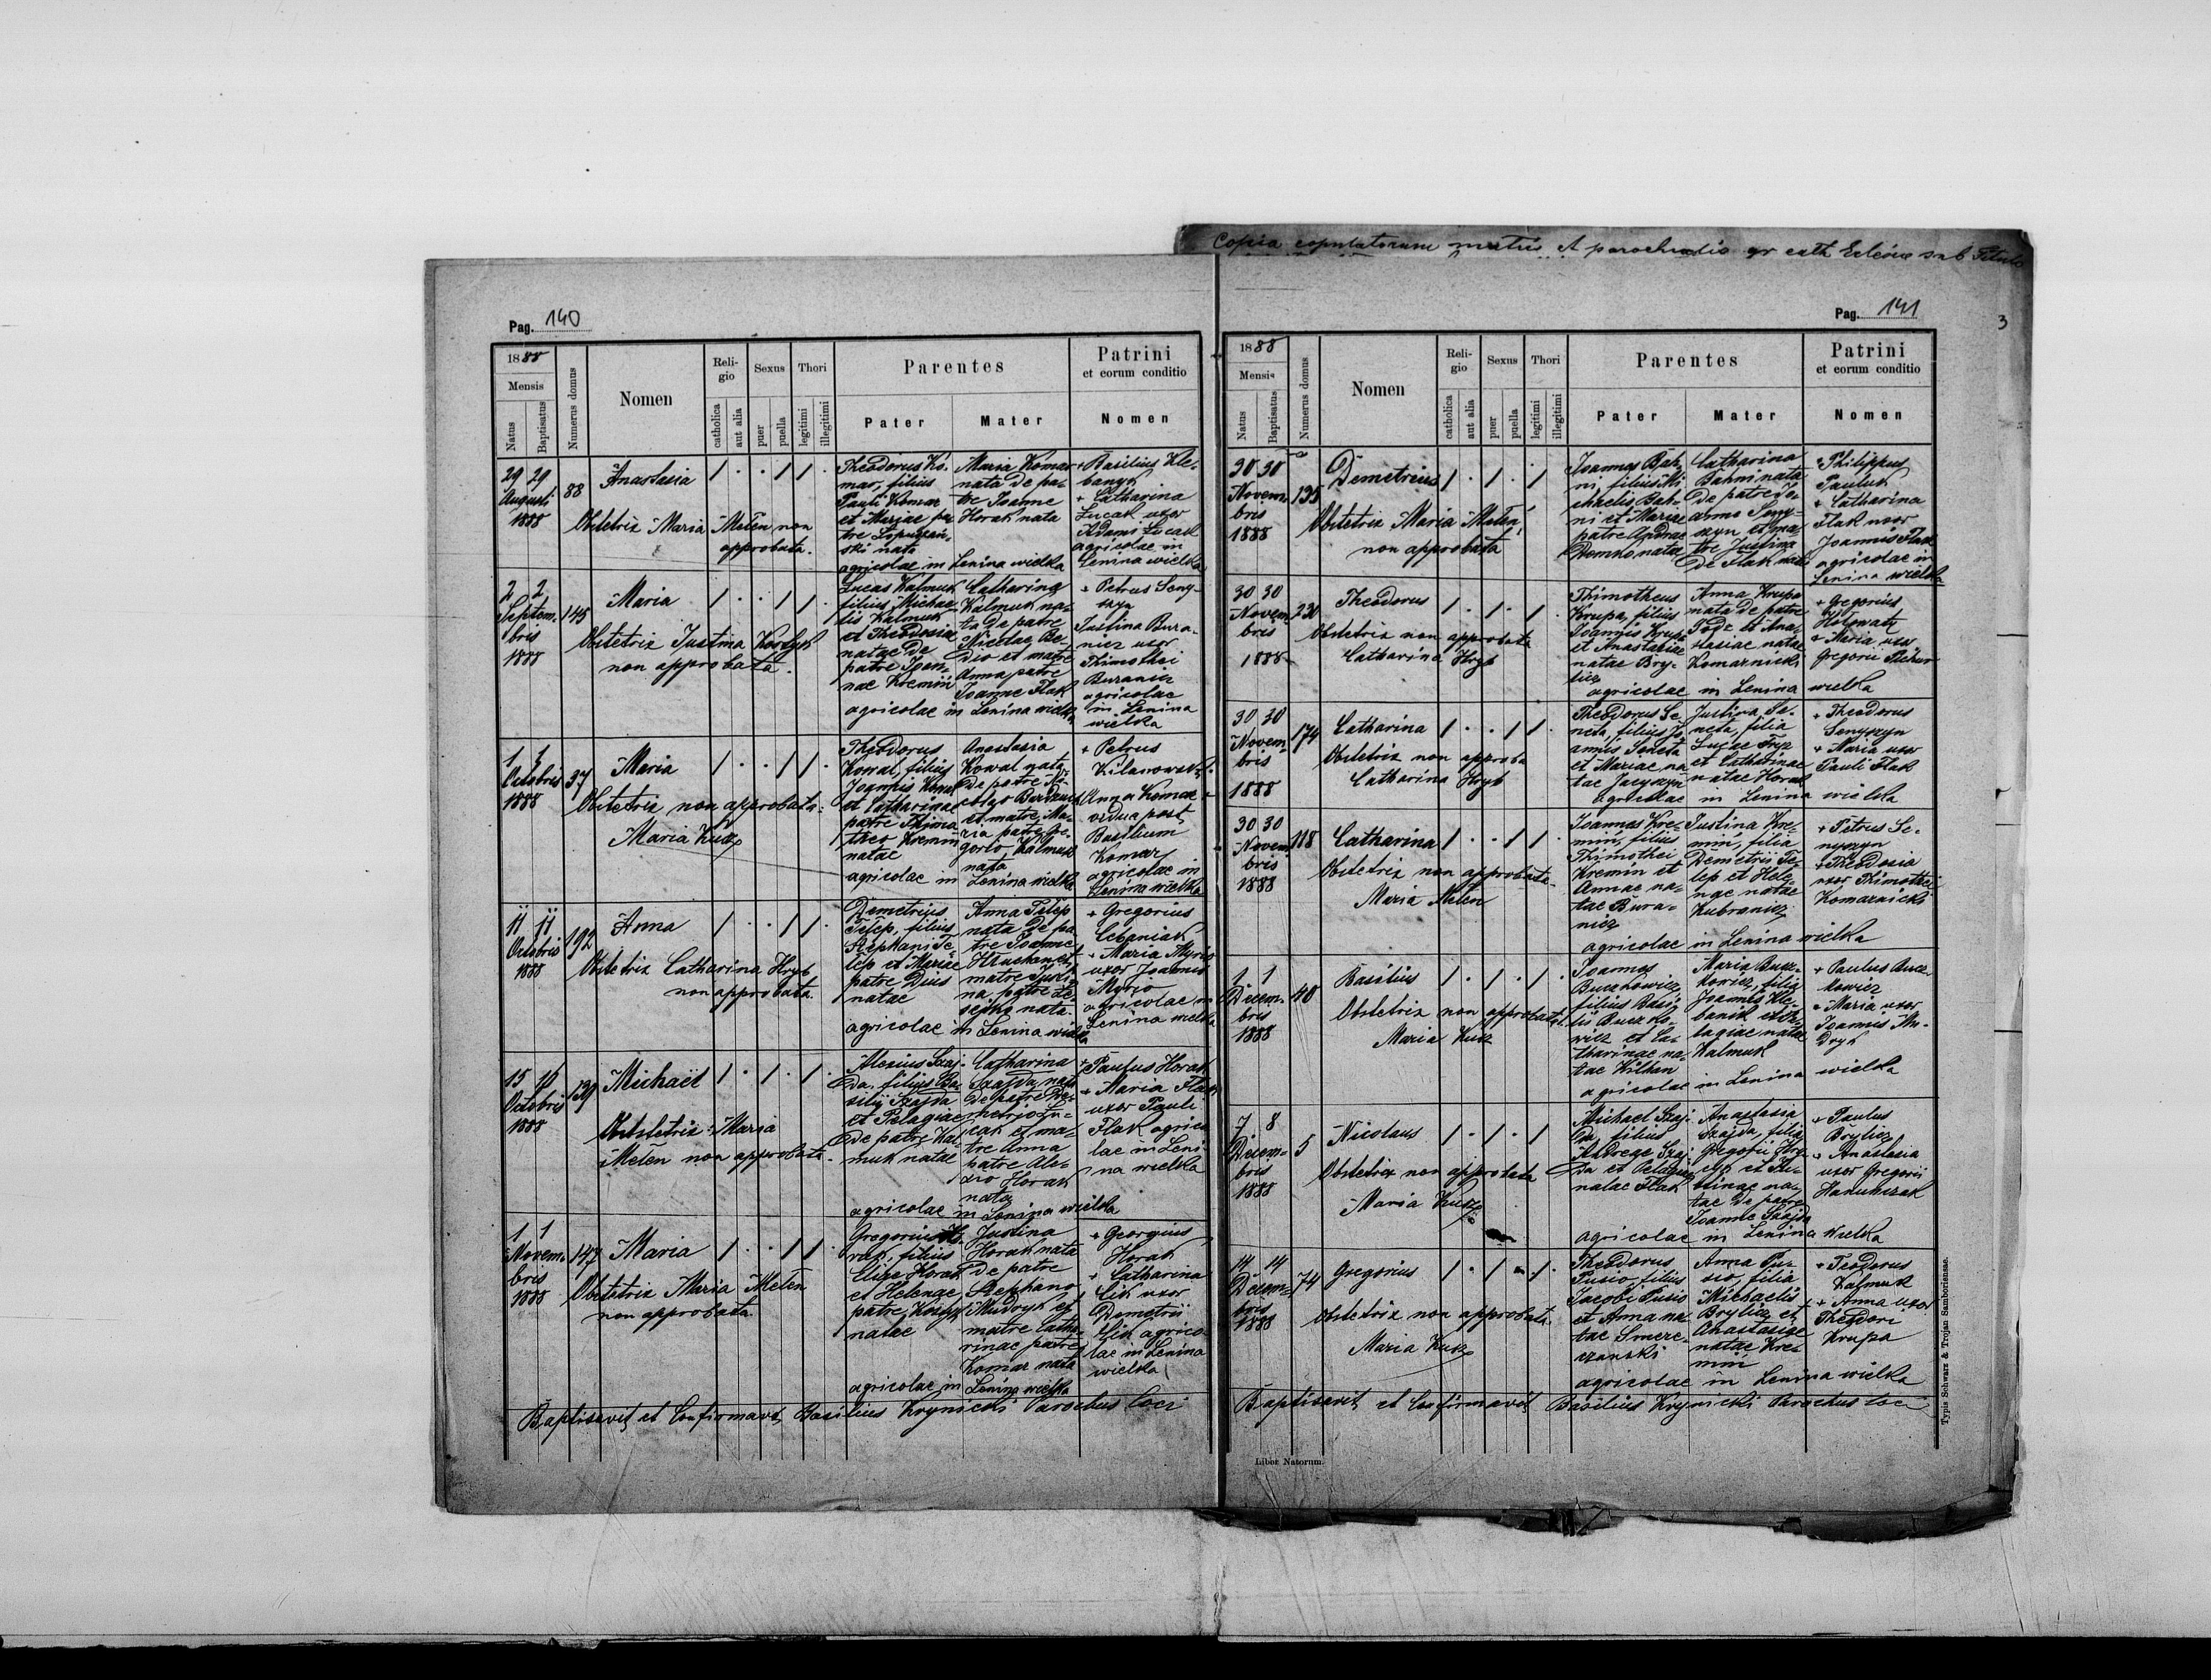 Copia copulatorum metrices et parochialis gr cath Eclesiae sub Titulo
Pag. 140
1888
Mensis
Natus
Baptisatus
Numerus domus
Nomen
Reli-
gio
catholica
aut alia
Sexus
puer
puella
Thori
legitimi
illegitimi
Parentes
Pater
Mater
Patrini
et eorum conditio
Nomen
29 29
Augusti
1888
88
Anastasia
Obstetrix Maria Meten non
approbata.
Theodorus Ko-
mar, filius
Pauli Komar
et Mariae pa
tre
ski nata
Maria Komar
nata de pa-
tre Joanne
Horak nata
agricolae in Lenina wielka
+ Basilius Kle-
banyk
+ Catharina
Lucak uxor
Adami Lucak
agricolae in
Lenina wielka
2 2
Septem-
bris
1888
145
Maria
Obstetrix Justina Kostyk
non approbata.
Lucas Kalmuk
filius Michae-
lis Kalmuk
et Theodosia
natae de
patre Joan-
nae Kremin
Catharina
Kalmuk na-
ta de patre
Nicolae Be-
dio et matre
Anna patre
Joanne Flak
agricolae in Lenina wielka
+ Petrus Seny-
szyn
Justina Bura-
nicz uxor
Thimothei
Buranicz
agricolae
in Lenina
wielka
1 1
Octobris
1888
37
Maria
Obstetrix non approbata:
Maria Kucz
Theodorus
Kowal, filius
Joannis Kowal
et Catharinae
patre Thimo-
theo Kremin
natae
Anastasia
Kowal nata
de patre
et matre Ma-
ria patre Gre-
gorio Kalmuk
nata
agricolae in Lenina wielka
+ Petrus
Kilanowski
Anna Komar
vidua post
Basilium
Komar
agricolae in
Lenina wielka
11 11
Octobris
1888
192
Anna
Obstetrix Catharina Hryb
non approbata.
Demetrius
Telep, filius
Stephani Te-
lep et Mariae
patre Dius
natae
Anna Telep
nata de pa-
tre Joanne
Hruchan et
matre Justi-
na patre
nata.
agricolae in Lenina wielka
+ Gregorius
Cebaniak
+ Maria Myrio
uxor Joannis
Myrio
agricolae in
Lenina wielka
15 15
Octobris
1888
139
Michaël
Obstetrix: Maria
Meten non approbata.
Alexius Szaj-
da, filius Ba-
silii Szajda
et Pelagiae
de patre Kal-
muk natae
Catharina
Szajda, nata
de patre De-
metrio Lu-
cak et ma-
tre Anna
patre Ale-
xio Horak
nata
agricolae in Lenina wielka
+ Paulus Horak
+ Maria Flak
uxor Pauli
Flak agrico
lae in Leni-
na wielka
1 1
Novem-
bris
1888
147
Maria
Obstetrix Maria Meten
non approbata
Gregorius Ho-
rak, filius
Eliae Horak
et Helenae
patre Kostyk
natae
Justina
Horak nata
de patre
Stephano
Mudryk et
matre Catha-
rinae patre
Komar nata
agricolae in Lenina wielka
+ Georgius
Horak
+ Catharina
Cik uxor
Demetrii
Cik agrico-
lae in Lenina
wielka
Baptisavit et Confirmavit Basilius Krynicki Parochus loci
Pag. 141
3
1888
Mensis
Natus
Baptisatus
Numerus domus
Nomen
Reli-
gio
catholica
aut alia
Sexus
puer
puella
Thori
legitimi
illegitimi
Parentes
Pater
Mater
Patrini
et eorum conditio
Nomen
30 30
Novem-
bris
1888
135
Demetrius
Obstetrix Maria Meten
non approbata
Joannes Bah-
ni, filius Mi-
chaelis Bah-
ni et Mariae
patre Andrae
Demko natae
Catharina
Bahni nata
de patre Jo-
anne Seny-
szyn et ma-
tre Justina
de Flak nata
+ Philippus
Pauluk
+ Catharina
Flak uxor
Joannis Flak
agricolae in
Lenina wielka
30 30
Novem-
bris
1888
230
Theodorus
Obstetrix non approbata
Catharina Hryb
Thimotheus
Krupa, filius
Joannis Krupa
et Anastasiae
natae Bry-
licz
Anna Krupa
nata de patre
et Ana-
stasiae natae
Komarnicki
agricolae in Lenina wielka
+ Gregorius
Holowatz
+ Maria uxor
Gregorii
30 30
Novem-
bris
1888
174
Catharina
Obstetrix non approba
Catharina Hryb
Theodorus Se-
neta, filius Jo-
annis Seneta
et Mariae na
tae Jacyszyn
Justina Se-
neta, filia
Lucae Fryz
et Catharinae
natae Horak
agricolae in Lenina wielka
+ Theodorus
Senyszyn
+ Maria uxor
Pauli Flak
30 30
Novem-
bris
1888
118
Catharina
Obstetrix non approbata
Maria Meten
Joannes Kre-
min, filius
Thimothei
Kremin et
Annae na-
tae Bura-
nicz
Justina Kre-
min, filia
Demetrii Te-
lep et Hele-
nae natae
Kubranicz
agricolae in Lenina wielka
+ Petrus Se-
nyszyn
+ Theodosia
uxor Thimothei
Komarnicki
1 1
Decem-
bris
1888
40
Basilius
Obstetrix non approbata
Maria Kucz
Joannes
Buczkowicz,
filius Basi-
lii Buczko-
wicz et Ca-
tharinae na-
tae Kilban
Maria Bucz-
kowicz, filia
Joannis Kle-
banik et Pe-
lagiae natae
Kalmuk
agricolae in Lenina wielka
+ Paulus Bucz-
kowicz
+ Maria uxor
Joannis Mu-
dryk
7 8
Decem-
bris
1888
5
Nicolaus
Obstetrix non approbata
Maria Kucz
Michael Szaj-
da, filius
Andreae Szaj-
da et Pelagiae
natae Flak
Anastasia
Szajda, filia
Gregorii Hry-
cyp et Ju-
stinae na-
tae de patre
Joanne Szajda
agricolae in Lenina Wielka
+ Paulus
Brylicz
+ Anastasia
uxor Gregorii
Hanuszczak
14 14
Decem-
bris
1888
74
Gregorius
Obstetrix non approbata
Maria Kucz
Theodorus
Pusio, filius
Jacobi Pusio
et Anna na-
tae Smere-
czanski
Anna Pu-
sio, filia
Michaelis
Brylicz et
Anastasiae
natae Kre-
min
agricolae in Lenina wielka
+ Teodorus
Kalmuk
+ Anna uxor
Theodori
Krupa
Baptisavit et Confirmavit Basilius Krynicki Parochus loci
Liber Natorum.
Typis Schwarz & Trojan Samboriensae.